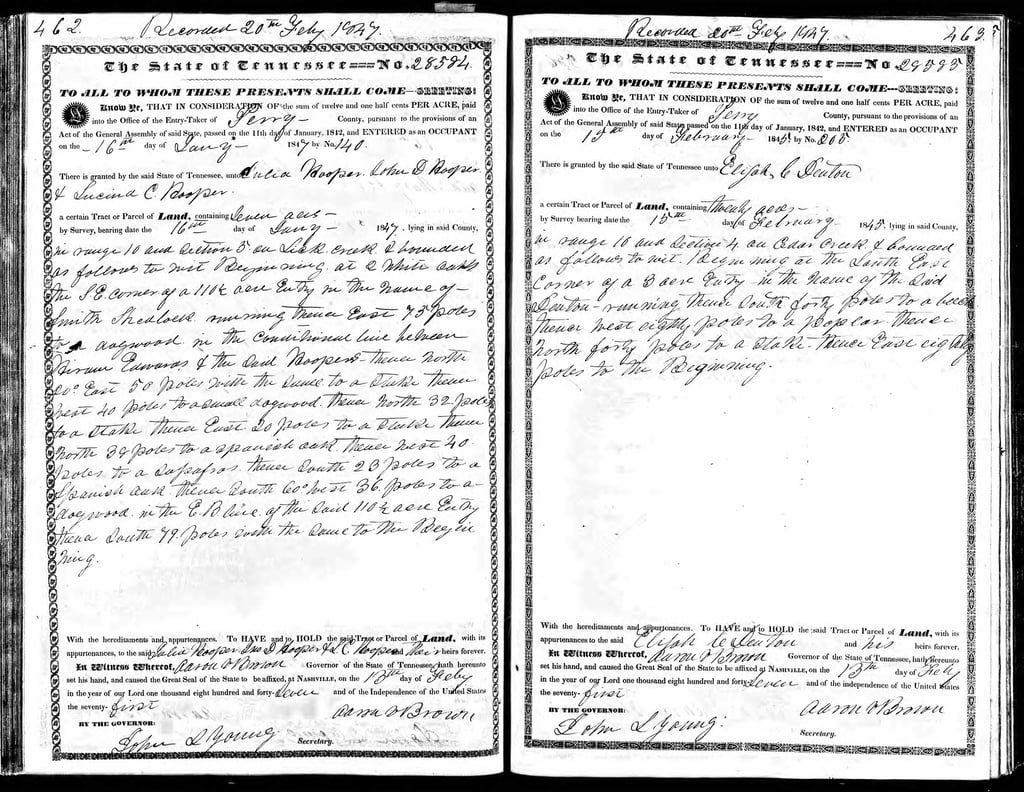 462. Recorded 20th Feby 1847.
The State of Tennessee No. 28584.
TO ALL TO WHOM THESE PRESENTS SHALL COME—GREETING:
Know Ye, THAT IN CONSIDERATION OF the sum of twelve and one half cents PER ACRE, paid
into the Office of the Entry-Taker of Perry County, pursuant to the provisions of an
Act of the General Assembly of said State, passed on the 11th day of January, 1842, and ENTERED as an OCCUPANT
on the 16th day of Jany 1847 by No. 140.
There is granted by the said State of Tennessee, unto Julia Hooper John D Hooper
& Lucind C. Hooper.
a certain Tract or Parcel of Land, containing Seven acres
by Survey, bearing date the 16th day of Jany 1847, lying in said County,
in range 10 and Section 5 on Lick creek & bounded
as follows to wit Beginning at 2 White oaks
the S.E. corner of a 110½ acre Entry in the name of
Smith running thence East 75 poles
to a dogwood in the Conditional line between
Hiram Edwards & the said Hoopers thence North
20° East 50 poles with the same to a stake thence
West 40 poles to a small dogwood thence North 32 poles
to a stake thence East 20 poles to a stake thence
North 38 poles to a spanish oak thence West 40
poles to a sasafras thence South 23 poles to a
Spanish oak thence South 60° West 36 poles to a
dogwood in the E.B line of the said 110½ acre Entry
thence South 79 poles with the same to the Begin
ning.
With the hereditaments and appurtenances. To HAVE and to HOLD the said Tract or Parcel of Land, with its
appurtenances, to the said Julia Hooper Jno D Hooper & L C Hooper their heirs forever.
In Witness Whereof, Aaron V Brown Governor of the State of Tennessee, hath hereunto
set his hand, and caused the Great Seal of the State to be affixed at NASHVILLE, on the 13th day of Feby
in the year of our Lord one thousand eight hundred and forty-Seven and of the Independence of the United States
the seventy-first
Aaron V Brown
BY THE GOVERNOR:
John S Young Secretary.
Recorded 20th Feby 1847. 463.
The State of Tennessee No 28585
TO ALL TO WHOM THESE PRESENTS SHALL COME—GREETING:
Know Ye, THAT IN CONSIDERATION OF the sum of twelve and one half cents PER ACRE, paid
into the Office of the Entry-Taker of Perry County, pursuant to the provisions of an
Act of the General Assembly of said State, passed on the 11th day of January, 1842, and ENTERED as an OCCUPANT
on the 15th day of February 1845 by No. 205.
There is granted by the said State of Tennessee unto Elijah C Denton
a certain Tract or Parcel of Land, containing twenty acres
by Survey bearing date the 15th day of February 1845, lying in said County,
in range 10 and Section 4 on Cedar Creek & bounded
as follows to wit. Beginning at the South East
Corner of a 3 acre Entry in the name of the Said
Denton running thence South forty poles to a beech
thence West eighty poles to a poplar thence
North forty poles to a stake thence East eighty
poles to the Beginning.
With the hereditaments and appurtenances. To HAVE and to HOLD the said Tract or Parcel of Land, with its
appurtenances to the said Elijah C Denton and his heirs forever.
In Witness Whereof, Aaron V Brown Governor of the State of Tennessee, hath hereunto
set his hand, and caused the Great Seal of the State to be affixed at NASHVILLE, on the 13th day of Feby
in the year of our Lord one thousand eight hundred and forty-Seven and of the independence of the United States
the seventy-first
Aaron V Brown
BY THE GOVERNOR:
John S Young. Secretary.